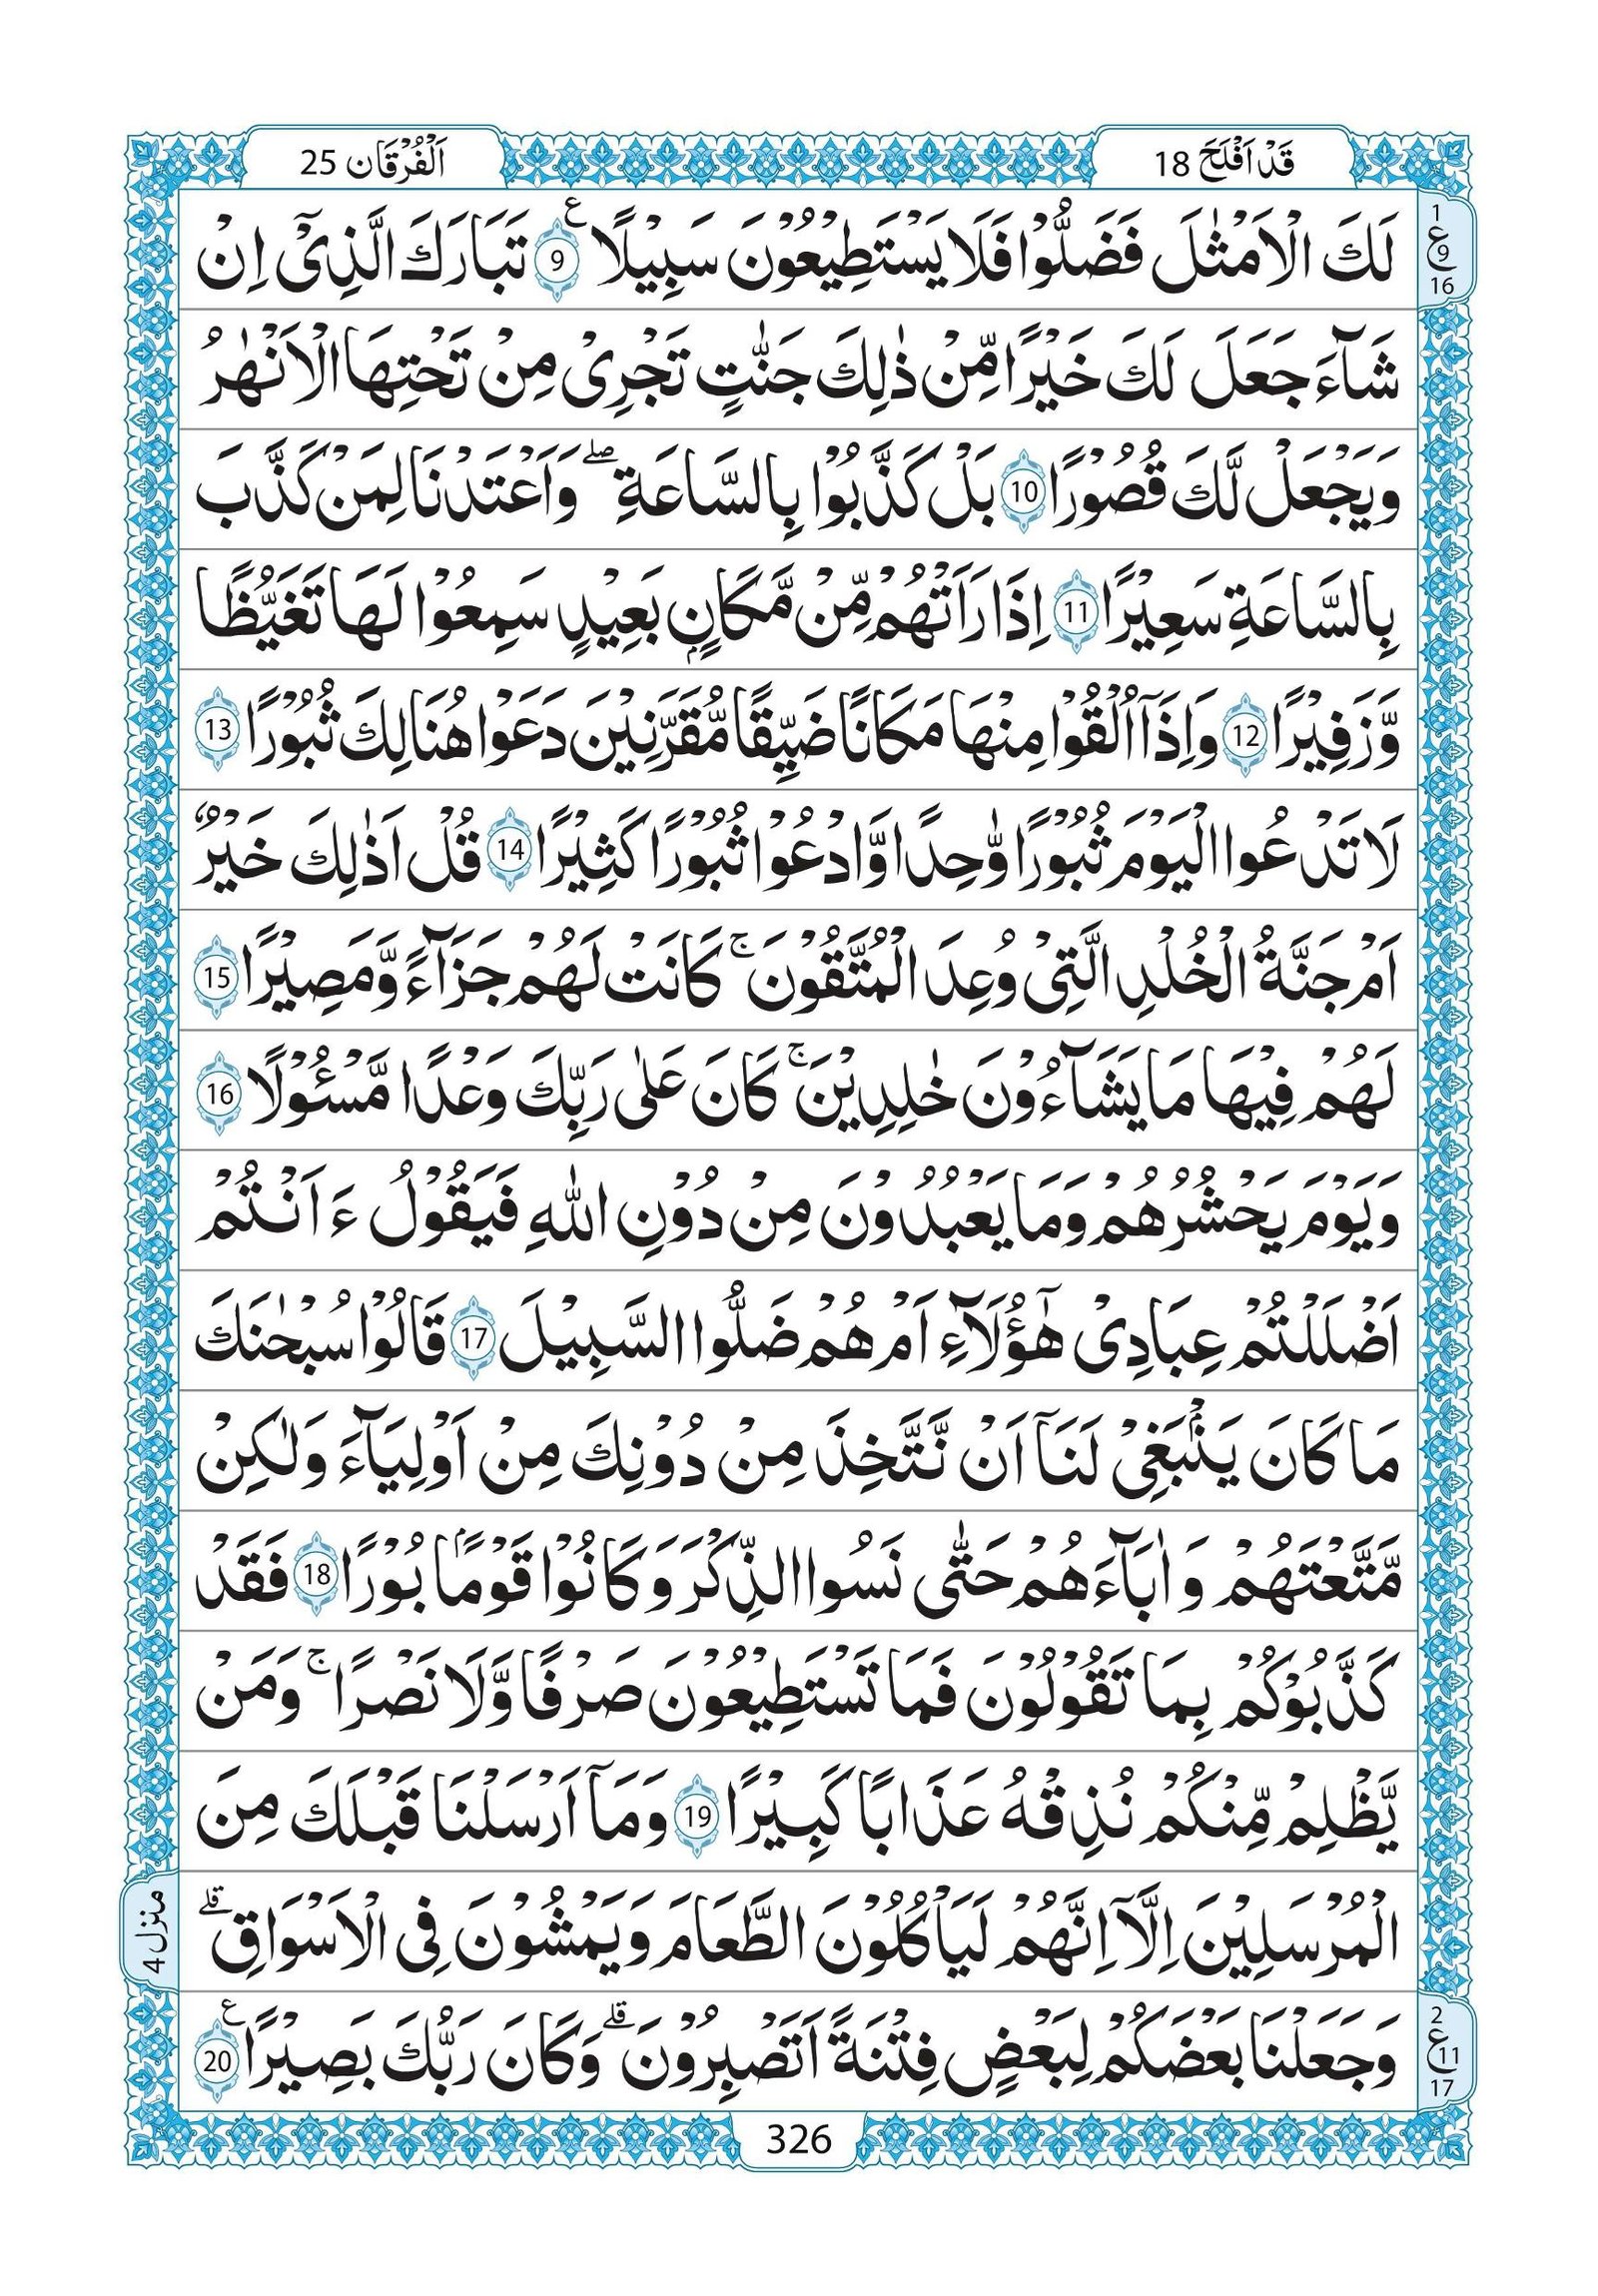 قَدْ اَفْلَحَ 18
اَلْفُرْقَان 25
1
ع
9
16
لَكَ الْاَمْثٰلَ فَضَلُّوْا فَلَا يَسْتَطِيْعُوْنَ سَبِيْلًا ۧ 9 تَبَارَكَ الَّذِىْٓ اِنْ
شَآءَ جَعَلَ لَكَ خَيْرًا مِّنْ ذٰلِكَ جَنّٰتٍ تَجْرِىْ مِنْ تَحْتِهَا الْاَنْهٰرُ
وَيَجْعَلْ لَّكَ قُصُوْرًا 10 بَلْ كَذَّبُوْا بِالسَّاعَةِ ۖ وَاَعْتَدْنَا لِمَنْ كَذَّبَ
بِالسَّاعَةِ سَعِيْرًا 11 اِذَا رَاَتْهُمْ مِّنْ مَّكَانٍۭ بَعِيْدٍ سَمِعُوْا لَهَا تَغَيُّظًا
وَّزَفِيْرًا 12 وَاِذَآ اُلْقُوْا مِنْهَا مَكَانًا ضَيِّقًا مُّقَرَّنِيْنَ دَعَوْا هُنَالِكَ ثُبُوْرًا 13
لَا تَدْعُوا الْيَوْمَ ثُبُوْرًا وّٰحِدًا وَّادْعُوْا ثُبُوْرًا كَثِيْرًا 14 قُلْ اَذٰلِكَ خَيْرٌ
اَمْ جَنَّةُ الْخُلْدِ الَّتِىْ وُعِدَ الْمُتَّقُوْنَ ۚ كَانَتْ لَهُمْ جَزَآءً وَّمَصِيْرًا 15
لَهُمْ فِيْهَا مَا يَشَآءُوْنَ خٰلِدِيْنَ ۚ كَانَ عَلٰى رَبِّكَ وَعْدًا مَّسْئُوْلًا 16
وَيَوْمَ يَحْشُرُهُمْ وَمَا يَعْبُدُوْنَ مِنْ دُوْنِ اللّٰهِ فَيَقُوْلُ ءَاَنْتُمْ
اَضْلَلْتُمْ عِبَادِىْ هٰٓؤُلَآءِ اَمْ هُمْ ضَلُّوا السَّبِيْلَ 17 قَالُوْا سُبْحٰنَكَ
مَا كَانَ يَنْۢبَغِىْ لَنَآ اَنْ نَّتَّخِذَ مِنْ دُوْنِكَ مِنْ اَوْلِيَآءَ وَلٰكِنْ
مَّتَّعْتَهُمْ وَاٰبَآءَهُمْ حَتّٰى نَسُوا الذِّكْرَ وَكَانُوْا قَوْمًۢا بُوْرًا 18 فَقَدْ
كَذَّبُوْكُمْ بِمَا تَقُوْلُوْنَ فَمَا تَسْتَطِيْعُوْنَ صَرْفًا وَّلَا نَصْرًا ۚ وَمَنْ
يَّظْلِمْ مِّنْكُمْ نُذِقْهُ عَذَابًا كَبِيْرًا 19 وَمَآ اَرْسَلْنَا قَبْلَكَ مِنَ
الْمُرْسَلِيْنَ اِلَّآ اِنَّهُمْ لَيَاْكُلُوْنَ الطَّعَامَ وَيَمْشُوْنَ فِى الْاَسْوَاقِ ۗ
وَجَعَلْنَا بَعْضَكُمْ لِبَعْضٍ فِتْنَةً اَتَصْبِرُوْنَ ۗ وَكَانَ رَبُّكَ بَصِيْرًا ۧ 20
2
ع
11
17
منزل 4
326